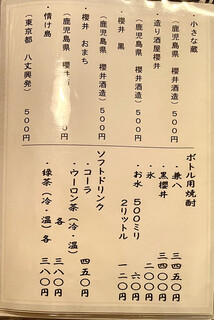 ・小さな蔵
（鹿児島県 櫻井酒造）５００円
・造り酒屋櫻井
（鹿児島県 櫻井酒造）５００円
・櫻井 黒
（鹿児島県 櫻井酒造）５００円
・櫻井 おまち
（鹿児島県 櫻井
・情け島
（東京都 八丈興発）５００円
ボトル用焼酎
・兼八 ３４５０円
・黒櫻井 ３４５０円
・氷 ２００円
・お水 ５００ミリ ６０円
２リットル １２０円
ソフトドリンク
・コーラ ４５０円
・ウーロン茶（冷・温）
各 ３８０円
・緑茶（冷・温）各 ３８０円